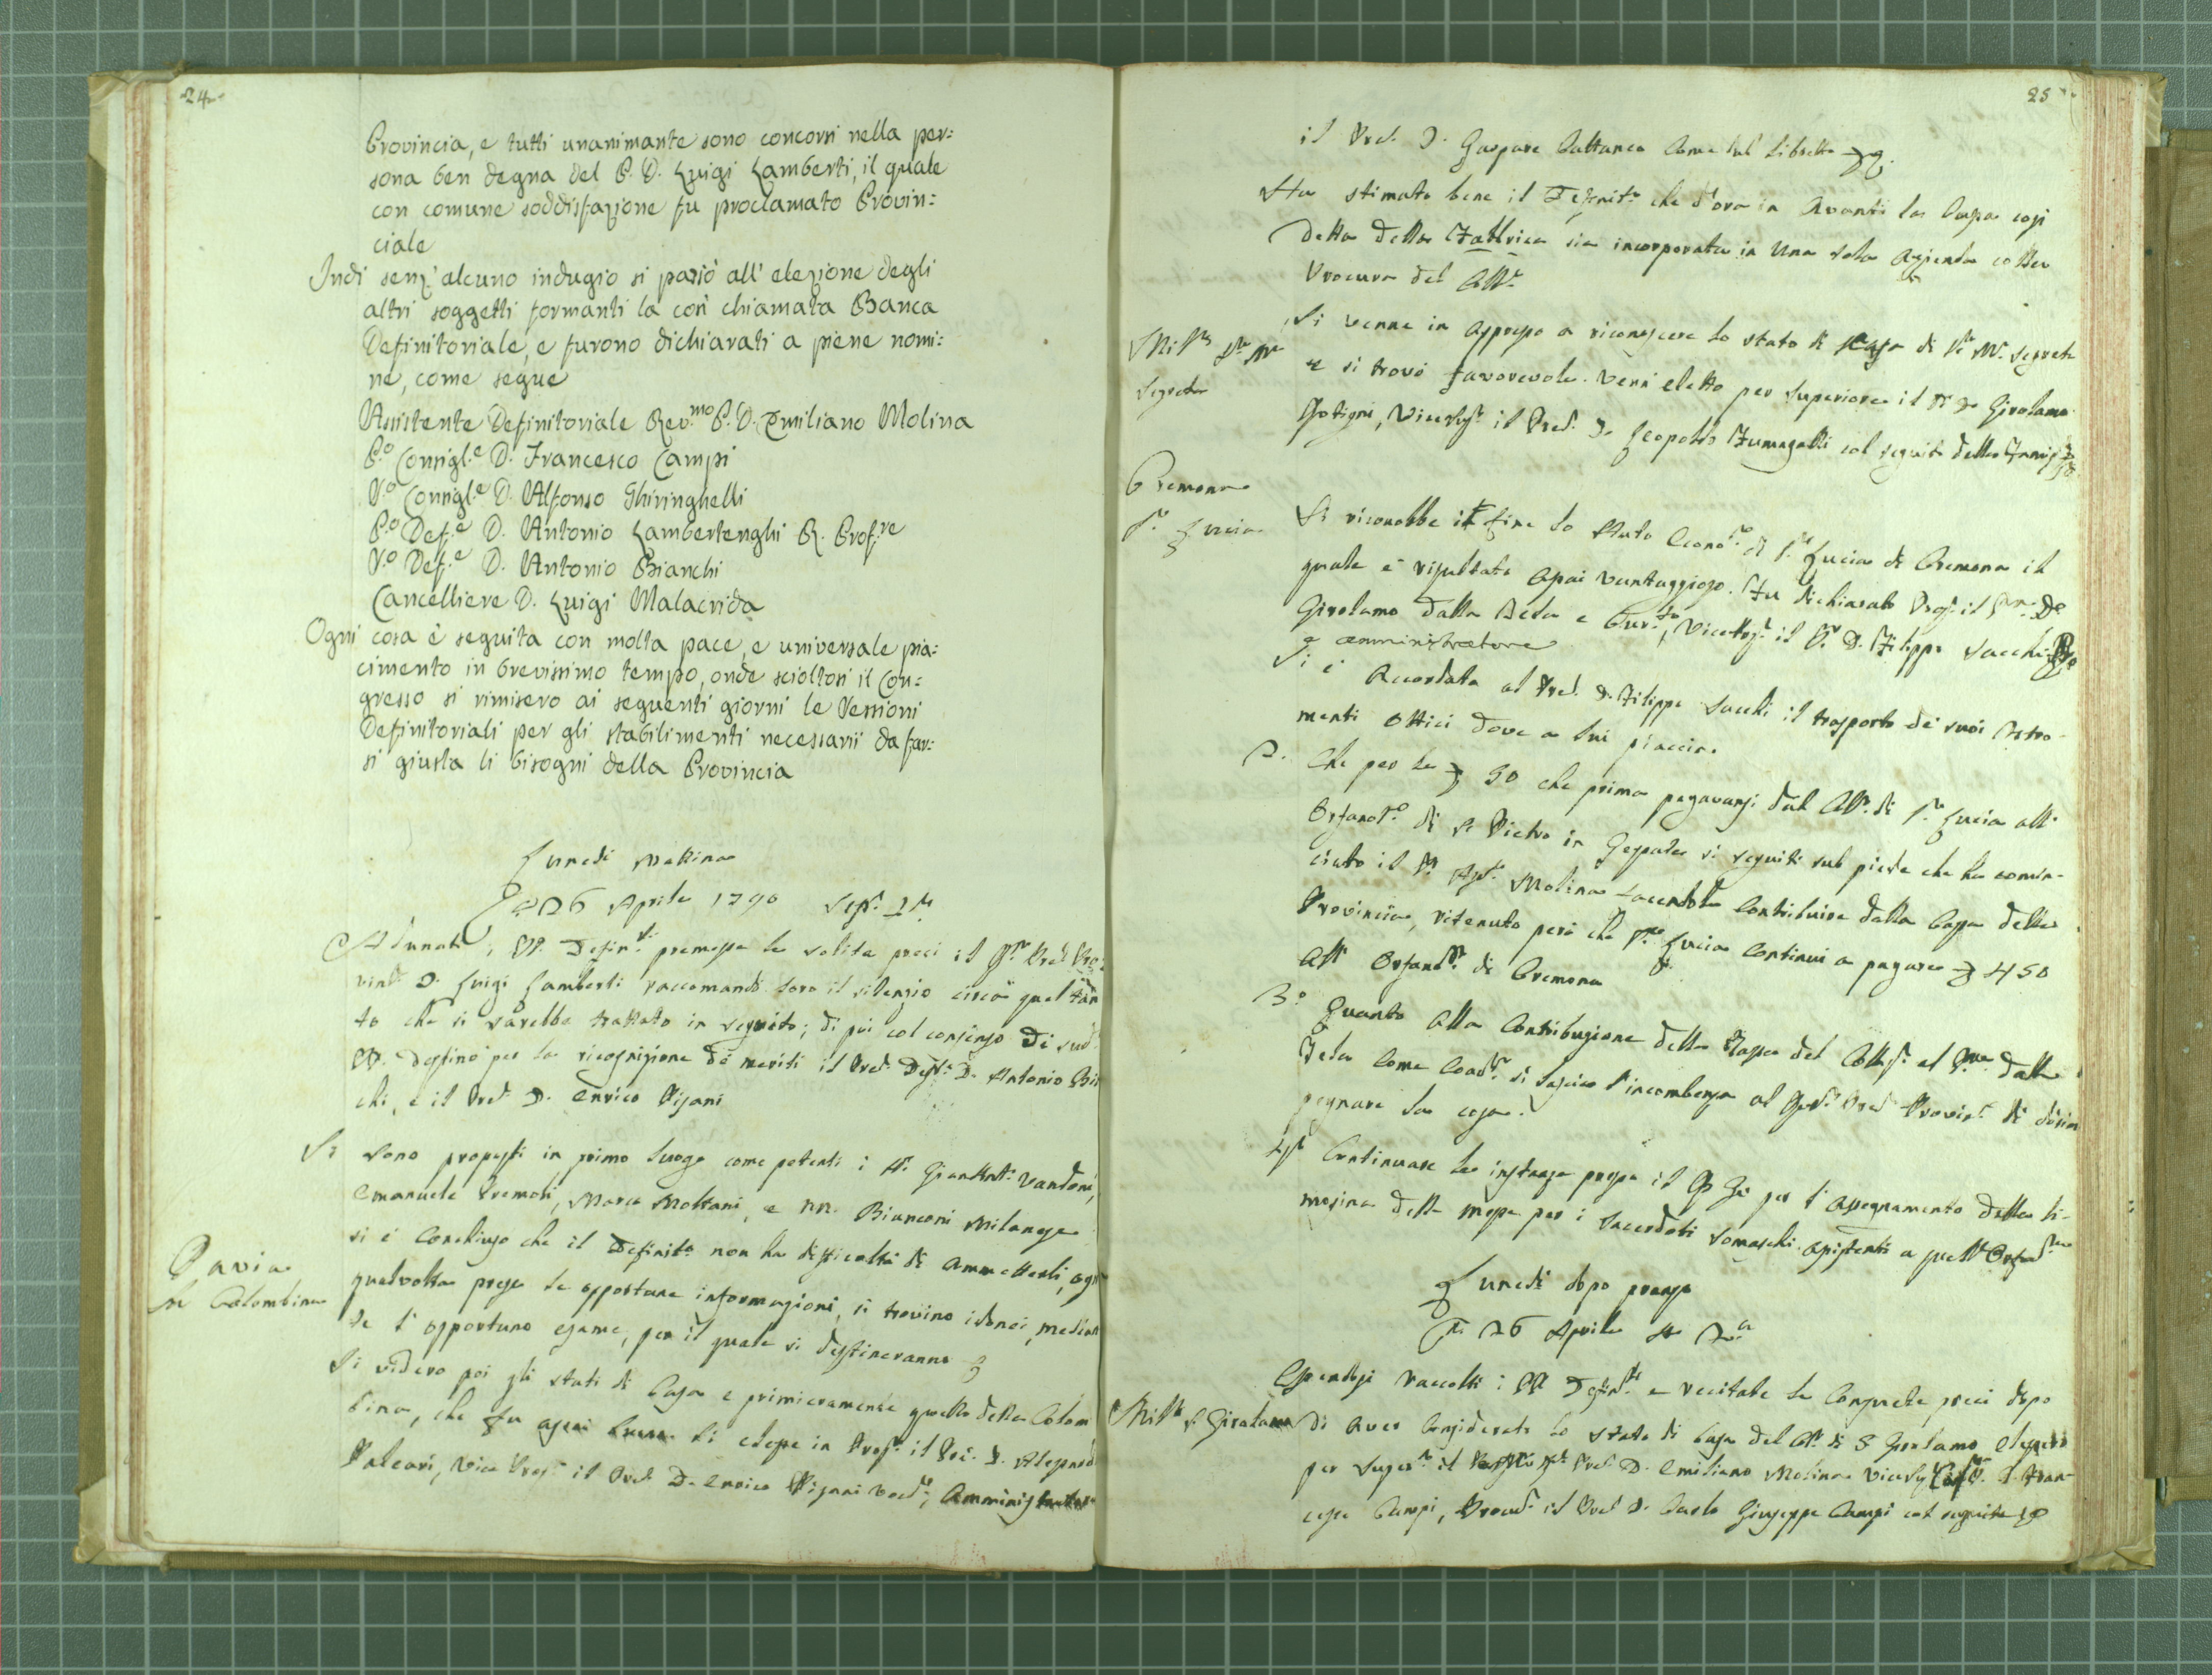 24
Provincia, e tutti unanimante sono concorsi nella per:
sona ben degna del P. D. Luigi Lamberti, il quale
con comune soddisfazione fu proclamato Provin:
ciale
Indi senz' alcuno indugio si passò all' elezione degli
altri soggetti formanti la così chiamata Banca
Definitoriale, e furono dichiarati a piene nomi:
ne, come segue
Assistente Definitoriale Rev.mo P. D. Emiliano Molina
P.o Consigl.e D. Francesco Campi
S.o Consigl.e D. Alfonso Ghiringhelli
P.o Def.e D. Antonio Lambertenghi R. Prof.re
S.o Def.e D. Antonio Bianchi
Cancelliere D. Luigi Malacrida
Ogni cosa è seguita con molta pace, e universale pia:
cimento in brevissimo tempo, onde scioltosi il Con:
gresso si rimisero ai seguenti giorni le Sessioni
Definitoriali per gli stabilimenti necessarii da far:
si giusta li bisogni della Provincia
Lunedi Mattina
26 Aprile 1790 Sess. 1.a
Adunati i PP. Defin.ti premesse le solite preci il Pre Pro
vinle D. Luigi Lamberti raccomandò loro il silenzio circa quel tan
to che si sarebbe trattato in seguito; di poi col consenso di sud.
PP. destinò per la ricognizione de meriti il Pred. Def.e D. Antonio Bian
chi, e il Pred. D. Enrico Pisani
Si sono proposti in primo luogo come petenti i Sr. Vandoni,
Emanuele Premoli, Marco Moltani, e NN. Bianconi Milanese
si è conchiuso che il Definit.o non ha difficoltà di ammetterli, ogni
qualvolta prese le opportune informazioni, si trovino idonei, median
te l' opportuno esame, per il quale si destineranno
Pavia
la Colombina
Si videro poi gli stati di Casa e primieramente quello della Colom
bina, che fu assai Si elesse in Prep. il Pre. D. Alessand
Paleari, Vice Prep. il Pred. D. Enrico Pisani Amministratore
25
il Pred. D. Gaspare Cattaneo come sul Libretto
Ha stimato bene il Definit.o che d'ora in avanti la Cassa cosi
detta della Fabbrica sia incorporata in una sola azienda colla
Procura del
Segreta
Si venne in appresso a riconoscere lo stato di Casa di S. M. Segreta
e si trovò favorevole. Venì eletto per Superiore il P. D. Girolamo
Viceresp. il Pred. D. Leopoldo Fumagalli col seguito della
Cremona
S.a Lucia
Si riconobbe in fine lo stato Econo.o di S.a Lucia di Cremona il
quale è risultato assai vantaggioso. Fu dichiarato Prep. il D.
Girolamo Dalla Beta e il P. D. Filippo Sacchi
e amministratore
Si è accordato al Pred. D. Filippo Sacchi il trasporto de' suoi Istro
menti ottici dove a lui piaccia.
2. Che per le 30 che prima pagavansi dal di S.a Lucia all'
Orfanot.o di S. Pietro in Gessate si seguiti sul piede che ha comin-
ciato il Molina facendole contribuire dalla Cassa della
Provincia, ritenuto però che S.a Lucia continui a pagare 450
all' Orfanot.o di Cremona
3.o Quanto alla contribuzione della Tassa del al dalla
Beta come si lascia l'incombenza al Pred. Provin.e di disim
pegnare la cosa.
4.o Continuare le instanze presso il per l' assegnamento della li-
mosina della messa per i Sacerdoti Somaschi assistenti a quell' Orfanot.o
Lunedi dopo pranzo
26 Aprile 2.a
Essendosi raccolti i PP. Defin.ti e recitate le consuete preci dopo
S. Girolamo
di aver considerato lo stato di Casa del di S Girolamo elessero
per Super.e il Pred. D. Emiliano Molina D. Fran-
cesco Campi, Procur. il Pred. D. Carlo Giuseppe Campi col seguito